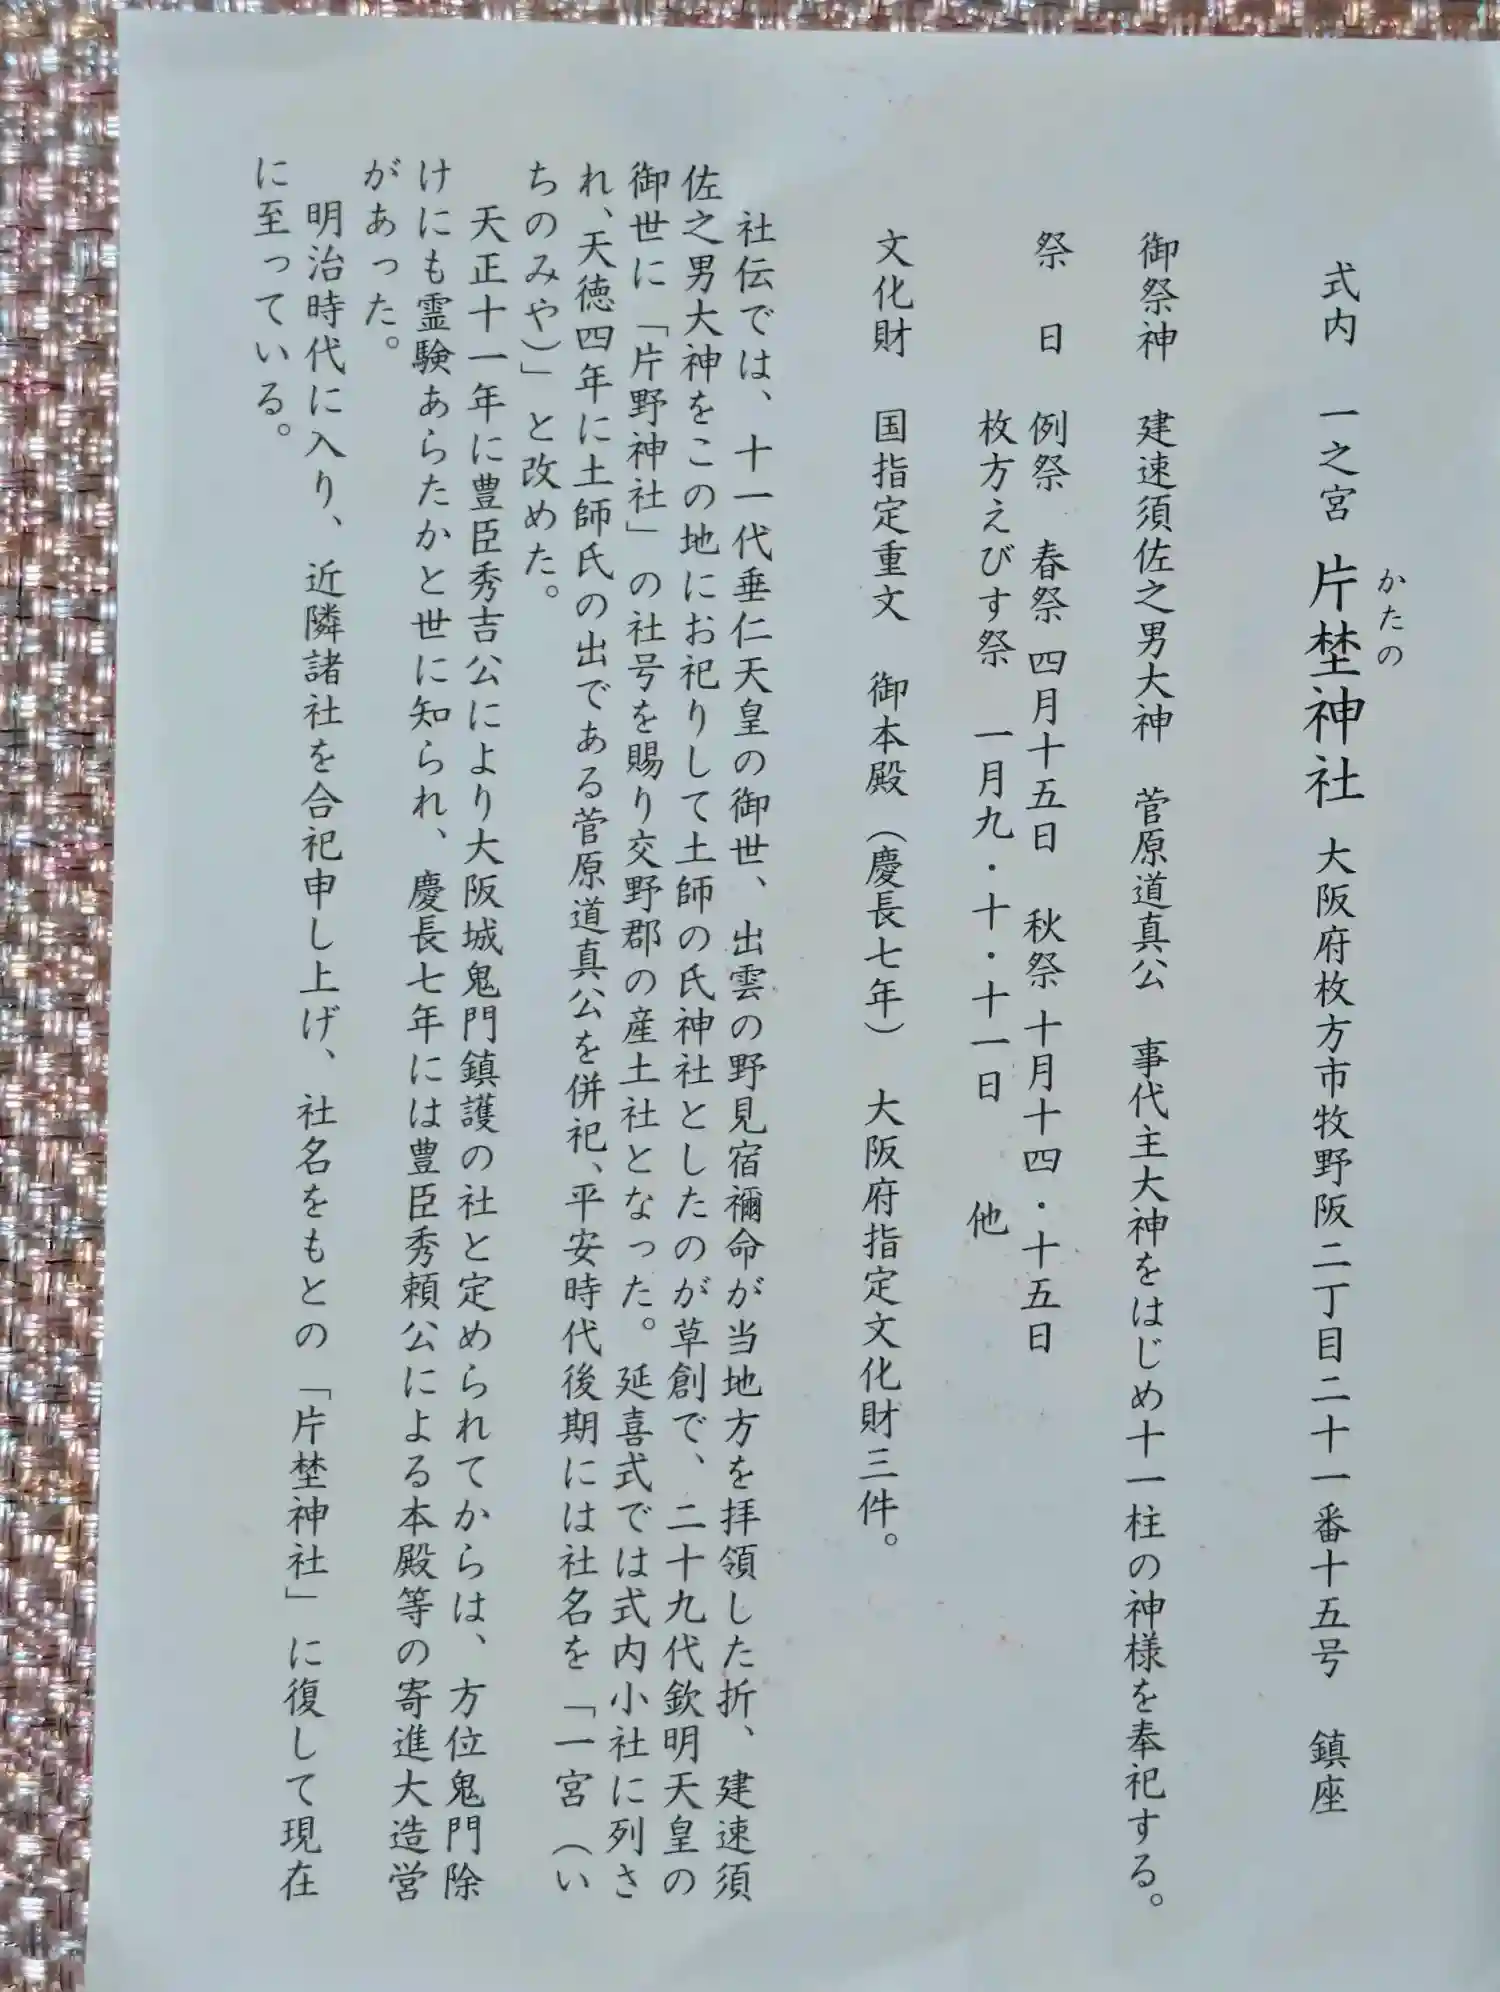 式内 一之宮 片埜神社 大阪府枚方市牧野阪二丁目二十一番十五号 鎮座
かたの
御祭神 建速須佐之男大神 菅原道真公 事代主大神をはじめ十一柱の神様を奉祀する。
祭 日 例祭 春祭 四月十五日 秋祭 十月十四・十五日
枚方えびす祭 一月九・十・十一日 他
文化財 国指定重文 御本殿（慶長七年） 大阪府指定文化財三件。
社伝では、十一代垂仁天皇の御世、出雲の野見宿禰命が当地方を拝領した折、建速須
佐之男大神をこの地にお祀りして土師の氏神社としたのが草創で、二十九代欽明天皇の
御世に「片野神社」の社号を賜り交野郡の産土社となった。延喜式では式内小社に列さ
れ、天徳四年に土師氏の出である菅原道真公を併祀、平安時代後期には社名を「一宮（い
ちのみや）」と改めた。
天正十一年に豊臣秀吉公により大阪城鬼門鎮護の社と定められてからは、方位鬼門除
けにも霊験あらたかと世に知られ、慶長七年には豊臣秀頼公による本殿等の寄進大造営
があった。
明治時代に入り、近隣諸社を合祀申し上げ、社名をもとの「片埜神社」に復して現在
に至っている。